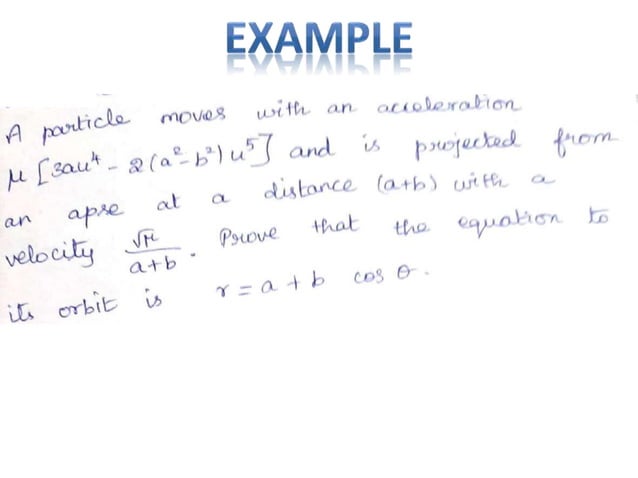 EXAMPLE
A particle moves with an acceleration
μ [3au⁴ - 2(a²-b²)u⁵] and is projected from
an apse at a distance (a+b) with a
velocity √μ/a+b. Prove that the equation to
its orbit is r = a + b cos θ.